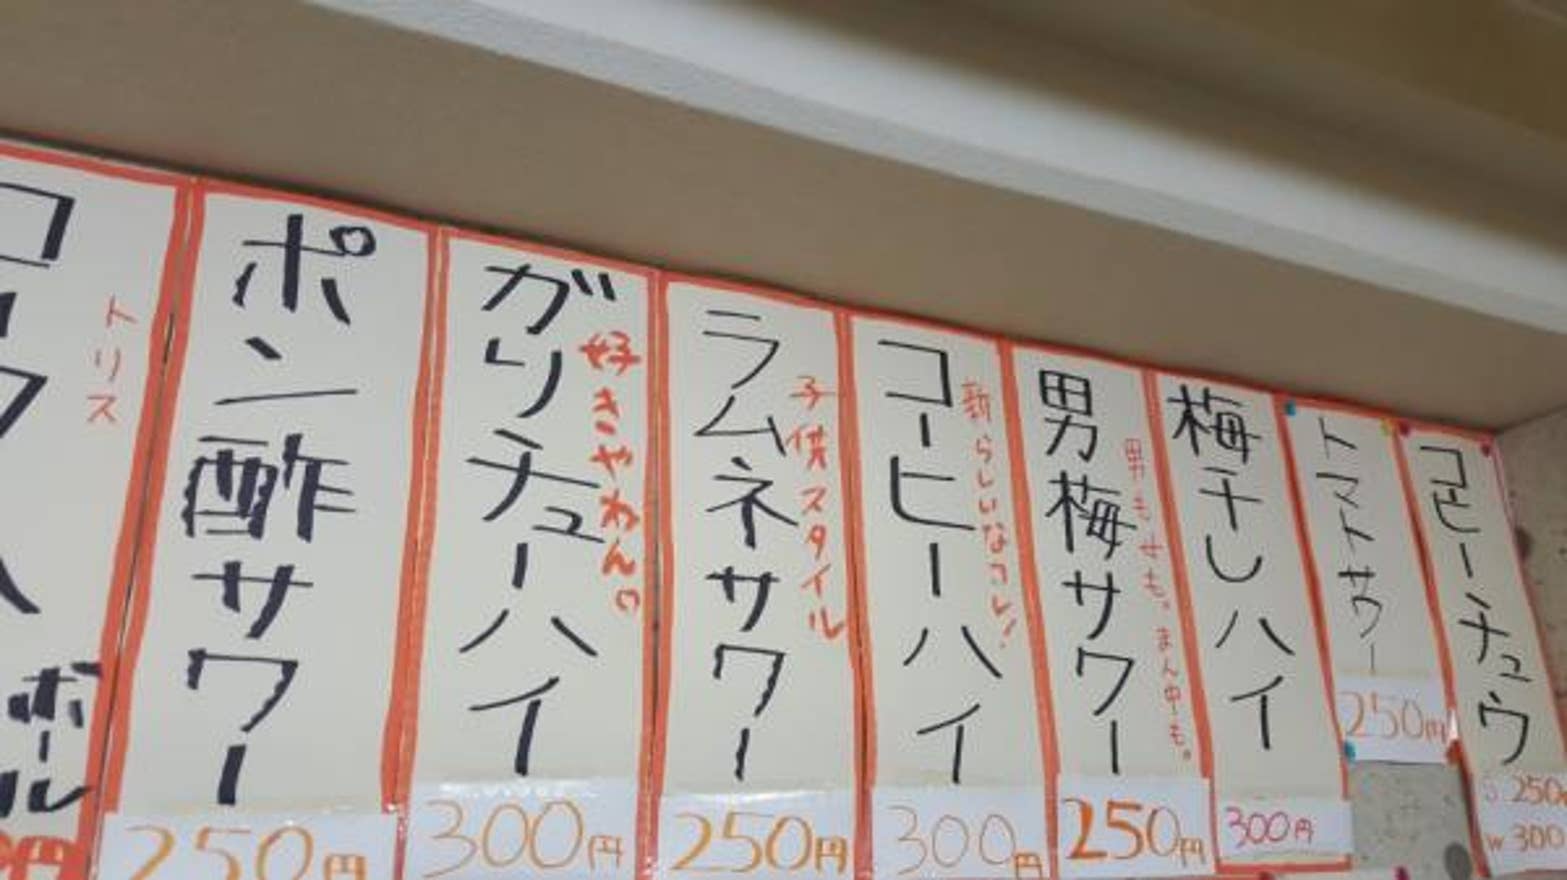 コーヒーチュウ
S 250
W 300
トマトサワー
250円
梅干しハイ
300円
男梅サワー
男も女も。まん中も。
250円
コーヒーハイ
新らしいなコレ!
300円
ラムネサワー
子供スタイル
250円
ガリチューハイ
好きやねん
300円
ポン酢サワー
250円
トリス
ボール
円